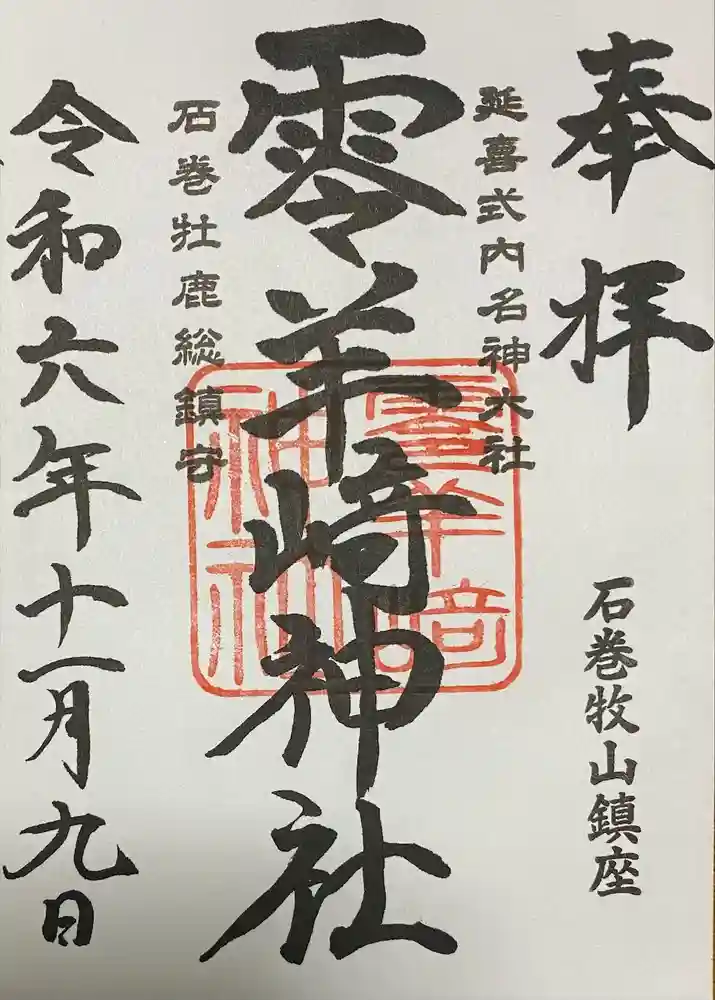 奉拝
石巻牧山鎮座
延喜式内名神大社
零羊崎神社
石巻牡鹿総鎮守
令和六年十一月九日
零羊崎
神社